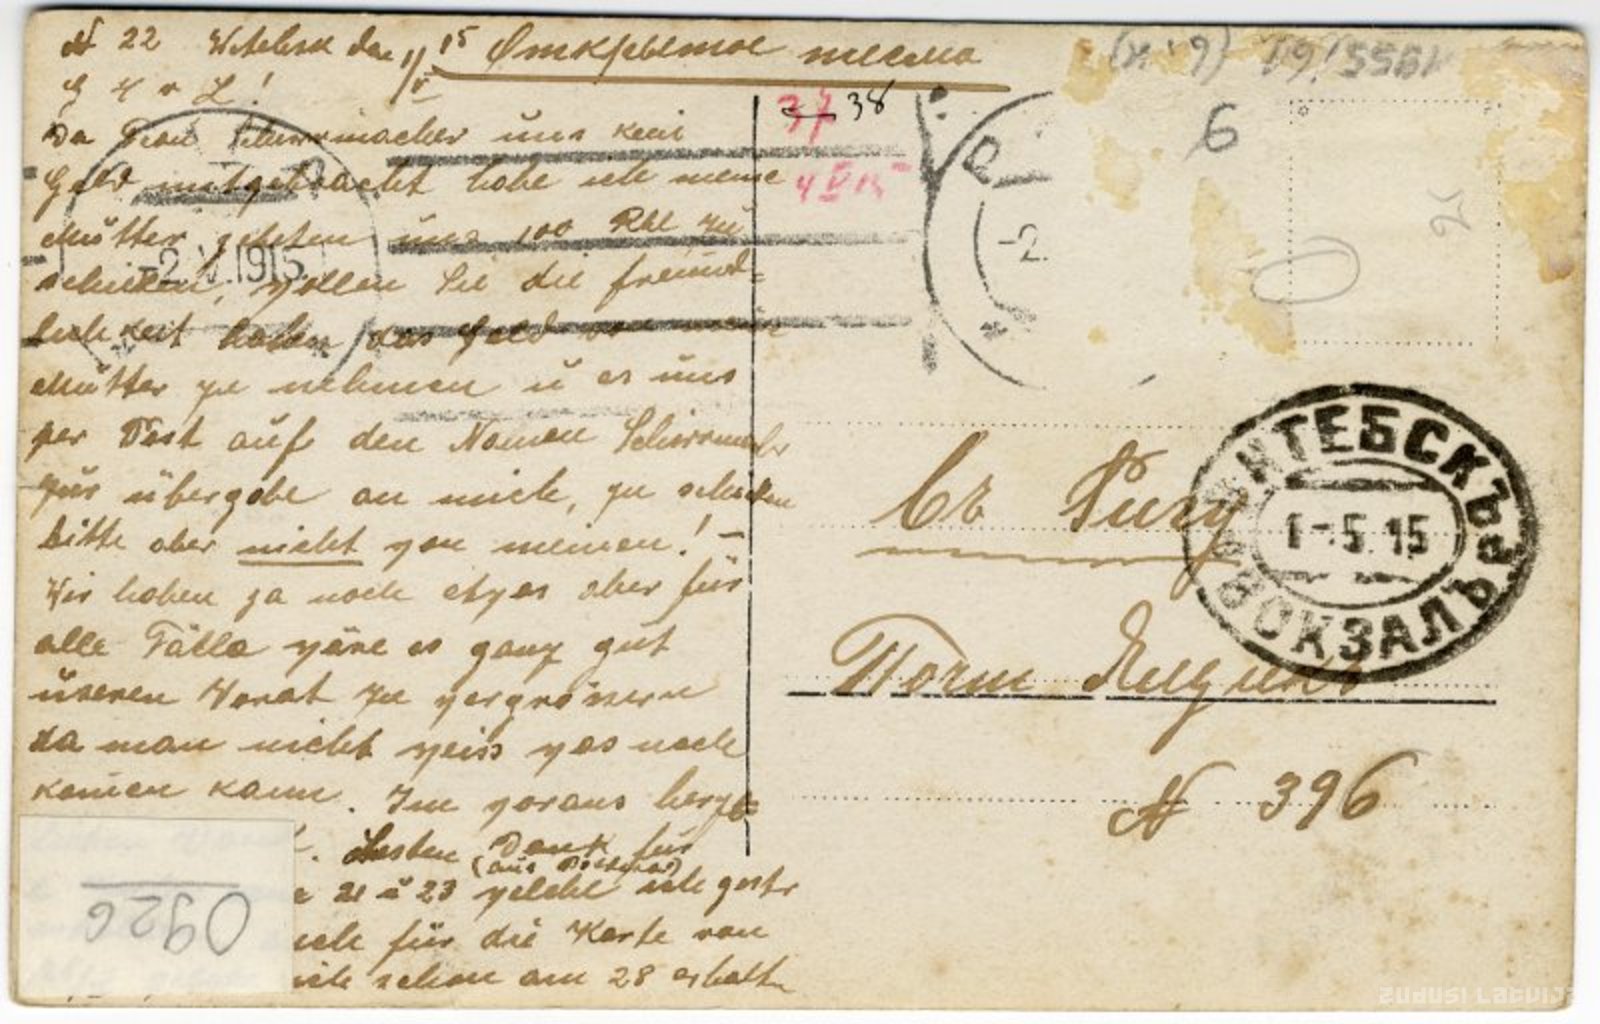 N 22 Witebsk den 1/V 15 Открытое письмо
G H u L!
Da Frau Schirrmacher uns kein
Geld mitgebracht habe ich meine
Mutter gebeten uns 100 Rbl zu
schicken, wollen Sie die freund-
lichkeit haben das Geld von meine
Mutter zu nehmen u es uns
per Post auf den Namen Schirrmacher
zur übergabe an mich, zu schicken
bitte aber nicht von meinen! —
Wir haben ja noch etwas aber für
alle Fälle wäre es ganz gut
unseren Vorat zu vergrössern
da man nicht weiss was noch
komen kann. Im voraus herzl
Besten Dank für
(aus Pleskau)
21 u 23 welche ich gestr
für die Karte von
ich schon am 28 erhalt
37 38
4 V 15
-2.V.1915
-2.
6
19551/61 (6.k)
Въ Ригу
Почт Ящикъ
N 396
ВИТЕБСКЪ
1-5.15
ВОКЗАЛЪ
0926
ZUDUSI LATVIJA